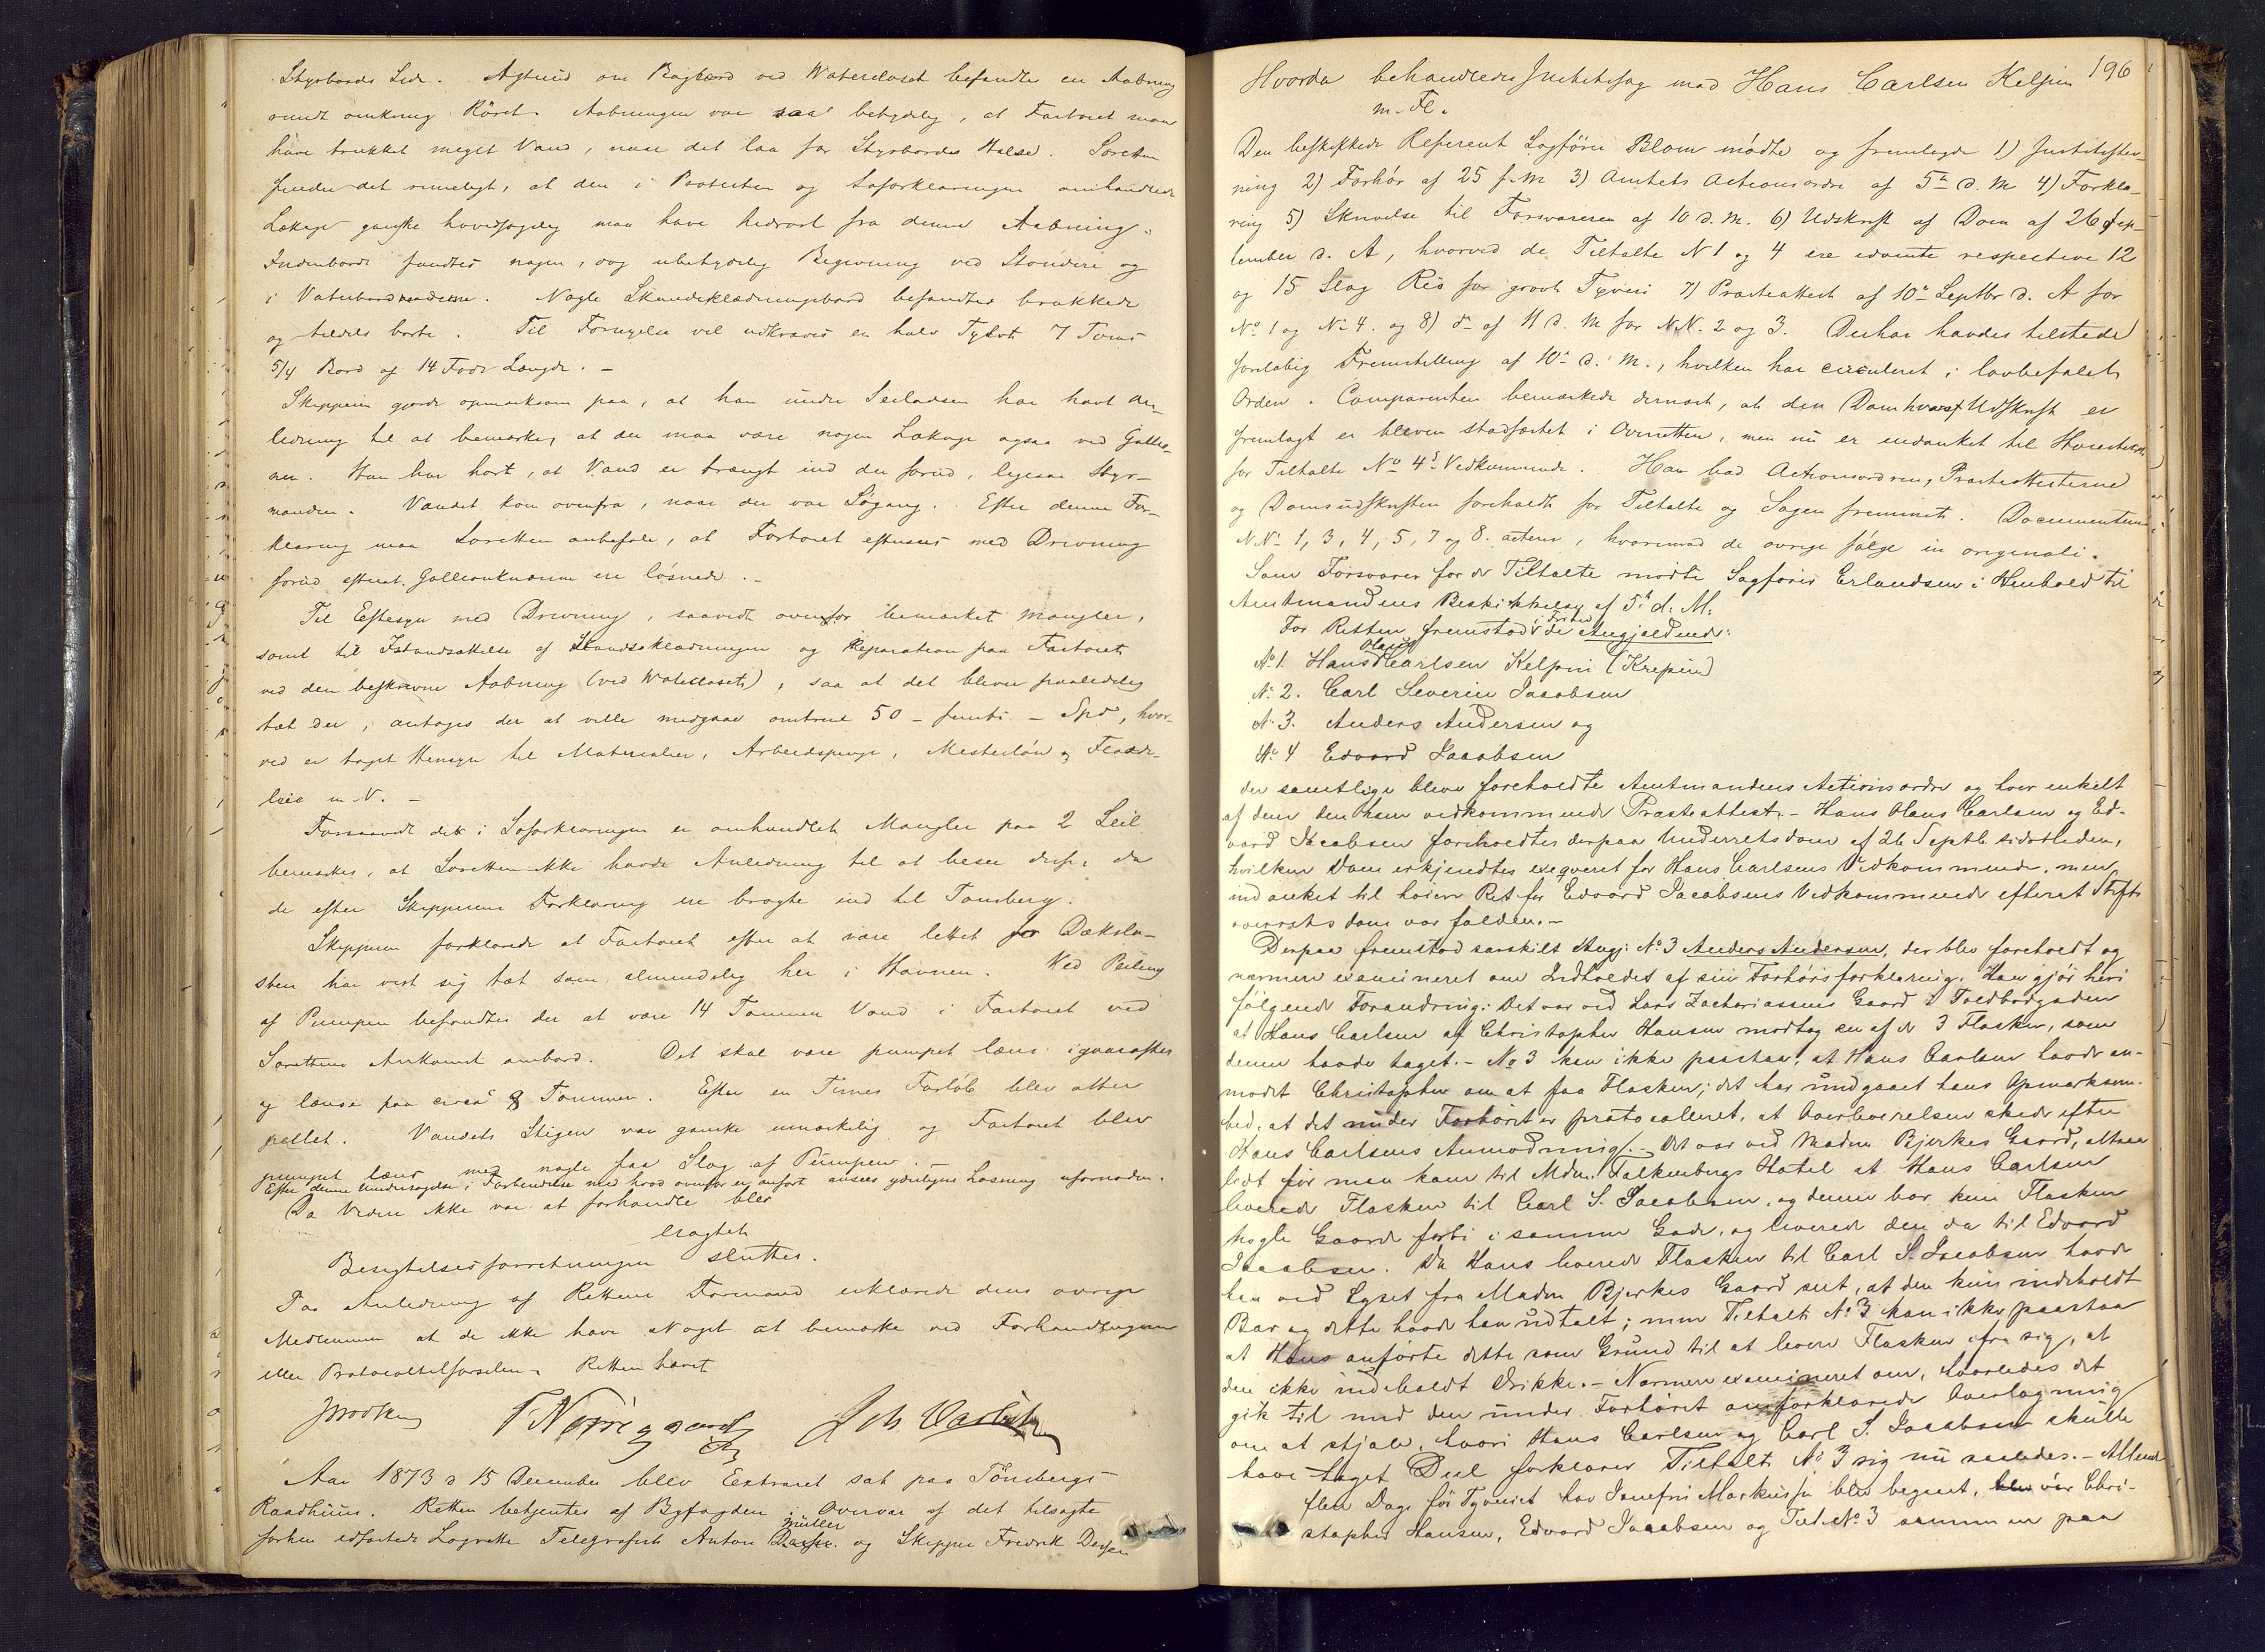 Styrbords Side. Agtenud om Bagbord ved Waterclosct befandtes en Aabning
rundt omkring Röret. Aabningen var saa betydelig, at Fartøiet maa
have trukket meget Vand, naar det laa for Styrbords Halse. Søretten
finder det rimeligt, at den i Protesten og Søforklaringen omhandlede
Lækage ganske hovedsagelig maa have hidrørt fra denne Aabning.
Indenbords fandtes nogen, dog ubetydelig Begivning ved Støndere og
i Vaterbordnaaderne. Nogle Skandseklædningsbord befandtes brukkede
og tildels borte. Til Fornyelse vil udkræves en halv Tylvt 7 Toms
5/4 Bord af 14 Fods Længde. –
Skipperen gjorde opmærksom paa, at han under Seiladsen har havt An-
ledning til at bemærke, at der maa være nogen Lækage ogsaa ved Gallio-
nen. Han har hørt, at Vand er trængt ind der forud, ligesaa Styr-
manden. Vandet kom ovenfra, naar der var Søgang. Efter denne For-
klaring maa Søretten anbefale, at Fartøiet eftersees med Drivning
forud efterat Gallionknæerne ere løsnede. –
Til Eftersyn med Drivning, saavidt ovenfor bemærket mangler,
samt til Istandsættelse af Skandseklædningen og Reparation paa Fartøiet
ved den beskrevne Aabning (ved Waterclosets), saa at det bliver paalidelig
tæt der, antages der at ville medgaae omtrent 50 – femti – Spd, hvor-
ved er taget Hensyn til Materialier, Arbeidspenge, Mesterløn og Flaade-
leie m. V. –
Forsaavidt det i Søforklaringen er omhandlet Mangler paa 2 Seil
bemærkes, at Søretten ikke havde Anledning til at besee disse, da
de efter Skipperens Forklaring ere bragte ind til Tønsberg.
Skipperen forklarede at Fartøiet efter at være lettet for Dæksla-
sten har vist sig tæt som almindelig her i Havnen. Ved Peiling
af Pumpen befandtes der at være 14 Tommer Vand i Fartøiet ved
Sørettens Ankomst ombord. Det skal være pumpet læns igaaraftes
og lænse paa circa 8 Tommer. Efter en Times Forløb blev atter
peilet. Vandets Stigen var ganske umærkelig og Fartøiet blev
pumpet læns med nogle faa Slag af Pumpen.
Efter denne Undersøgelse i Forbindelse med hvad ovenfor er anført ansees yderligere Losning ufornøden.
Da Videre ikke var at forhandle blev
eragtet
Besigtelsesforretningen sluttes.
Paa Anledning af Rettens Formand erklærede dens øvrige
Medlemmer at de ikke have Noget at bemærke ved Forhandlingerne
eller Protocoltilførselen. Retten hævet
T Nørregaard Joh
Aar 1873 d 15 December blev Extraret sat paa Tönsbergs
Raadhuus. Retten betjentes af Byfogden i Overvær af det tilsagte
Müller
forhen edfæstede Lagrette Telegrafist Anton og Skipper Fredrik
196
Hvorda behandledes Justitssag mod Hans Carlsen Kelpin
m. Fl.
Den beskikkede Referent Sagfører Blom mødte og fremlagde 1) Justitsstev-
ning 2) Forhør af 25 f. M 3) Amtets Actionsordre af 5te d. M 4) Forkla-
ring 5) Skrivelse til Forsvareren af 10 d. M. 6) Udskrift af Dom af 26 Sep-
tember d. A, hvorved de Tiltalte N 1 og 4 ere idømte respective 12
og 15 Slag Ris for grovt Tyveri 7) Præsteattest af 10de Septbr d. A for
No. 1 og No 4. og 8) do af 11 d. M for NN. 2 og 3. Derhos havdes tilstede
foreløbig Fremstilling af 10de d. M., hvilken har circuleret i lovbefalet
Orden. Comparenten bemærkede dernæst, at den Dom hvoraf Udskrift er
fremlagt er bleven stadfæstet i Overretten, men nu er indanket til Høiesteret
for Tiltalte No 4s Vedkommende. Han bad Actionsordren, Præsteattesterne
og Domsudskriften foreholdt for Tiltalte og Sagen fremmet. Documenterne
NNo 1, 3, 4, 5, 7 og 8. acteres, hvorimod de øvrige følge in originali.
Som Forsvarer for de Tiltalte mødte Sagfører Erlandsen i Henhold til
Amtmandens Beskikkelse af 5te d. M.
For Retten fremstod i frihed de Angjældende:
No. 1. Hans Olaus Carlsen Kelpin (Krepin)
No. 2. Carl Severin Jacobsen
No 3. Anders Andersen og
No. 4 Edvard Jacobsen
der samtlige bleve foreholdte Amtmandens Actionsordre og hver enkelt
af dem den ham vedkommende Præsteattest. – Hans Olaus Carlsen og Ed-
vard Jacobsen foreholdtes derpaa Underretsdom af 26 Septb. sidstleden,
hvilken Dom erkjendtes exeqveret for Hans Carlsens Vedkommende, men
indanket til høiere Ret for Edvard Jacobsens Vedkommende efterat Stifts
overretsdom var falden. –
Derpaa fremstod særskilt Angj. No. 3 Anders Andersen, der blev foreholdt og
nærmere examineret om Indholdet af sin Forhørsforklaring. Han gjør heri
følgende Forandring: Det var ved Lars Zachariassens Gaard i Toldbodgaden
at Hans Carlsen af Christopher Hansen modtog en af de 3 Flasker, som
denne havde taget. – No 3 kan ikke paastaa, at Hans Carlsen havde an-
modet Christopher om at faa Flasken; det har undgaaet hans Opmærksom-
hed, at det under Forhøret er protocoleret, at Overleverelsen skede efter
Hans Carlsens Anmodning. – Det var ved Madm Bjerkes Gaard, altsaa
lidt før man kom til Mdm. Falkenbergs Hotel at Hans Carlsen
leverede Flasken til Carl S. Jacobsen, og denne bar kun Flasken
nogle Gaarde forbi i samme Gade, og leverede den da til Edvard
Jacobsen. Da Hans leverede Flasken til Carl S. Jacobsen havde
han ved Lyset fra Madm Bjerkes Gaard seet, at den kun indeholdt
Bær og dette havde han udtalt; men Tiltalte No. 3 kan ikke paastaa
at Hans anførte dette som Grund til at levere Flasken ifra sig, at
den ikke indeholdt Drikke. – Nærmere examineret om, hvorledes det
gik til med den under Forhøret omforklarede Overlægning
om at stjæle, hvori Hans Carlsen og Carl S. Jacobsen skulle
have taget Deel forklarer Tiltalte No 3 sig nu saaledes. – Allerede
flere Dage før Tyveriet hos Jomfru Markussen blev begaaet, var Chri-
stopher Hansen, Edvard Jacobsen og Tilt. No. 3 sammen paa